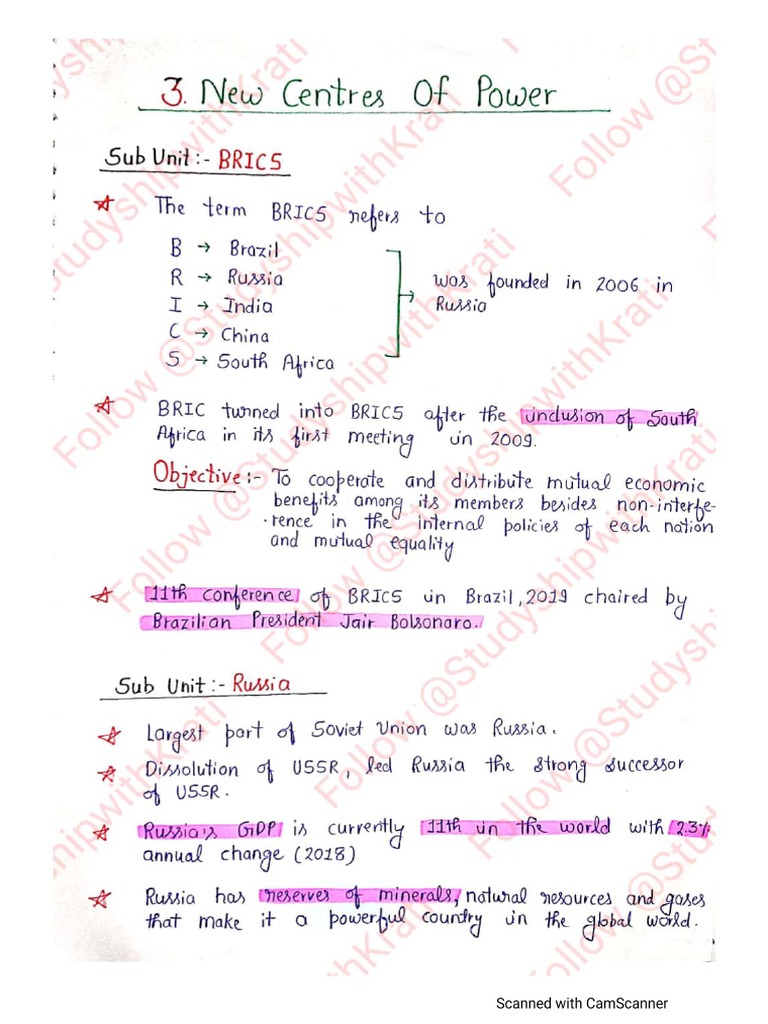 3. New Centres Of Power
Sub Unit :- BRICS
The term BRICS refers to
B → Brazil
R → Russia
I → India
C → China
S → South Africa
was founded in 2006 in
Russia
BRIC turned into BRICS after the inclusion of South
Africa in its first meeting in 2009.
Objective :- To cooperate and distribute mutual economic
benefits among its members besides non-interfe-
-rence in the internal policies of each nation
and mutual equality
11th conference of BRICS in Brazil, 2019 chaired by
Brazilian President Jair Bolsonaro.
Sub Unit :- Russia
Largest part of Soviet Union was Russia.
Dissolution of USSR, led Russia the strong successor
of USSR.
Russia's GDP is currently 11th in the world with 2.3%
annual change (2018)
Russia has reserves of minerals, natural resources and gases
that make it a powerful country in the global world.
Follow @StudyshipwithKrati
Scanned with CamScanner